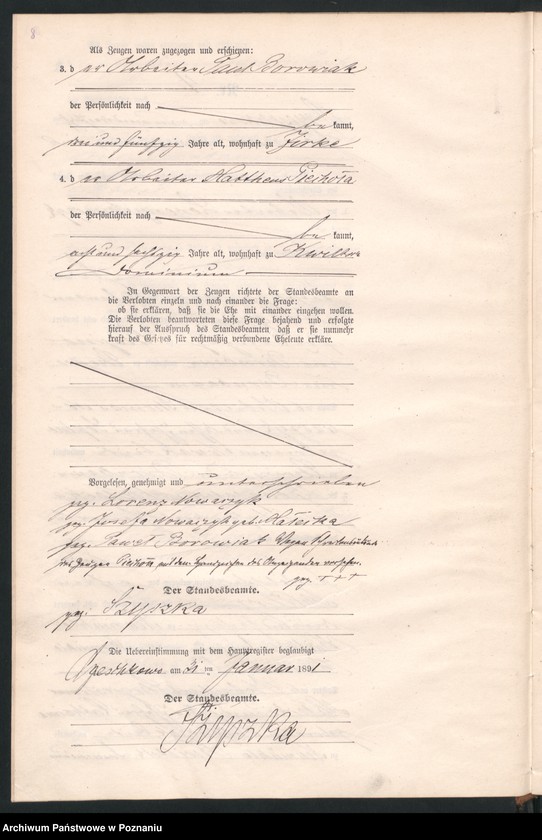 8
Als Zeugen waren zugezogen und erschienen:
3. der Arbeiter Pawel Borowiak
der Persönlichkeit nach
be kannt,
und fünfzig Jahre alt, wohnhaft zu Zirke
4. der Arbeiter Mattheus Piechota
der Persönlichkeit nach
be kannt,
acht und sechzig Jahre alt, wohnhaft zu Kwiltsch
Dominium
In Gegenwart der Zeugen richtete der Standesbeamte an
die Verlobten einzeln und nach einander die Frage:
ob sie erklären, daß sie die Ehe mit einander eingehen wollen.
Die Verlobten beantworteten diese Frage bejahend und erfolgte
hierauf der Ausspruch des Standesbeamten, daß er sie nunmehr
kraft des Gesetzes für rechtmäßig verbundene Eheleute erkläre.
Vorgelesen, genehmigt und unterschrieben
gez. Lorenz Nowaczyk
gez. Josefa Nowaczyk geb. Materka
gez. Pawel Borowiak Wegen
des Zeugen Piechota mit dem Handzeichen des versehen.
gez. +++
Der Standesbeamte.
gez. Szyszka
Die Uebereinstimmung mit dem Hauptregister beglaubigt
am 31 ten Januar 1891
Der Standesbeamte.
Szyszka
Archiwum Państwowe w Poznaniu